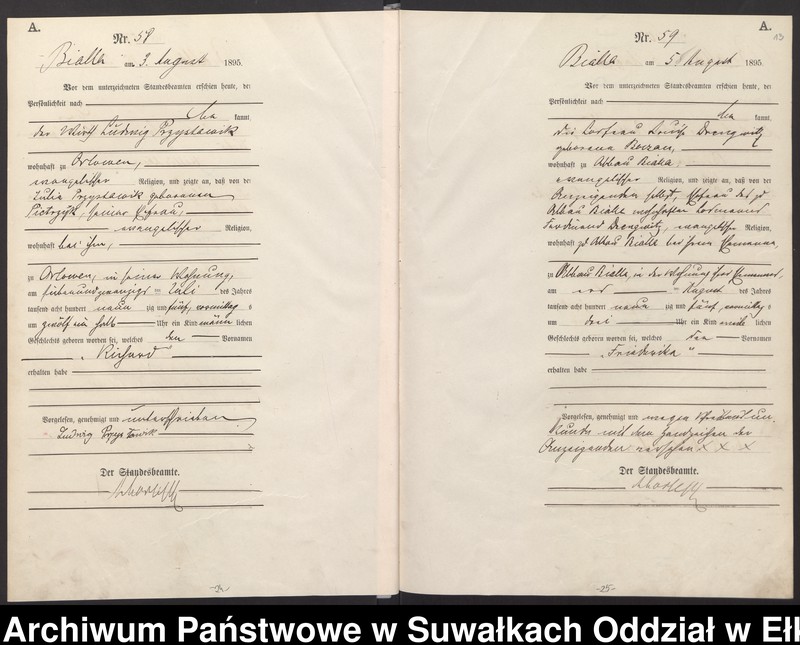 A.
Nr. 58
Bialla am 3. August 1895.
Vor dem unterzeichneten Standesbeamten erschien heute, der
Persönlichkeit nach
kannt,
der Wirth Ludwig Przystawik
wohnhaft zu Orlowen,
evangelischer Religion, und zeigte an, daß von der
Julie Przystawik geborenen
Pietrzyk, seiner Ehefrau,
evangelischer Religion,
wohnhaft bei ihm,
zu Orlowen, in seiner Wohnung,
am siebenundzwanzigsten Juli des Jahres
tausend acht hundert neunzig und fünf, vormittags
um zwölf ein halb Uhr ein Kind männlichen
Geschlechts geboren worden sei, welches den Vornamen
„Richard"
erhalten habe
Vorgelesen, genehmigt und unterschrieben
Ludwig Przystawik
Der Standesbeamte.
-24-
A.
13
Nr. 59
Bialla am 5. August 1895.
Vor dem unterzeichneten Standesbeamten erschien heute, der
Persönlichkeit nach
kannt,
die Losfrau Louise
geborene
wohnhaft zu Abbau Bialla
evangelischer Religion, und zeigte an, daß von der
Anzeigenden selbst, Ehefrau des zu
Abbau Bialla wohnhaften Losmanns
Ferdinand evangelischer Religion,
wohnhaft zu Abbau Bialla bei ihrem Ehemanne,
zu Abbau Bialla, in der Wohnung ihres Ehemannes,
am August des Jahres
tausend acht hundert neunzig und fünf, vormittags
um drei Uhr ein Kind weiblichen
Geschlechts geboren worden sei, welches den Vornamen
„Friederike"
erhalten habe
Vorgelesen, genehmigt und wegen Schreibens un-
kunde mit dem Handzeichen der
Anzeigenden versehen x x x
Der Standesbeamte.
-25-
Archiwum Państwowe w Suwałkach Oddział w Ełk